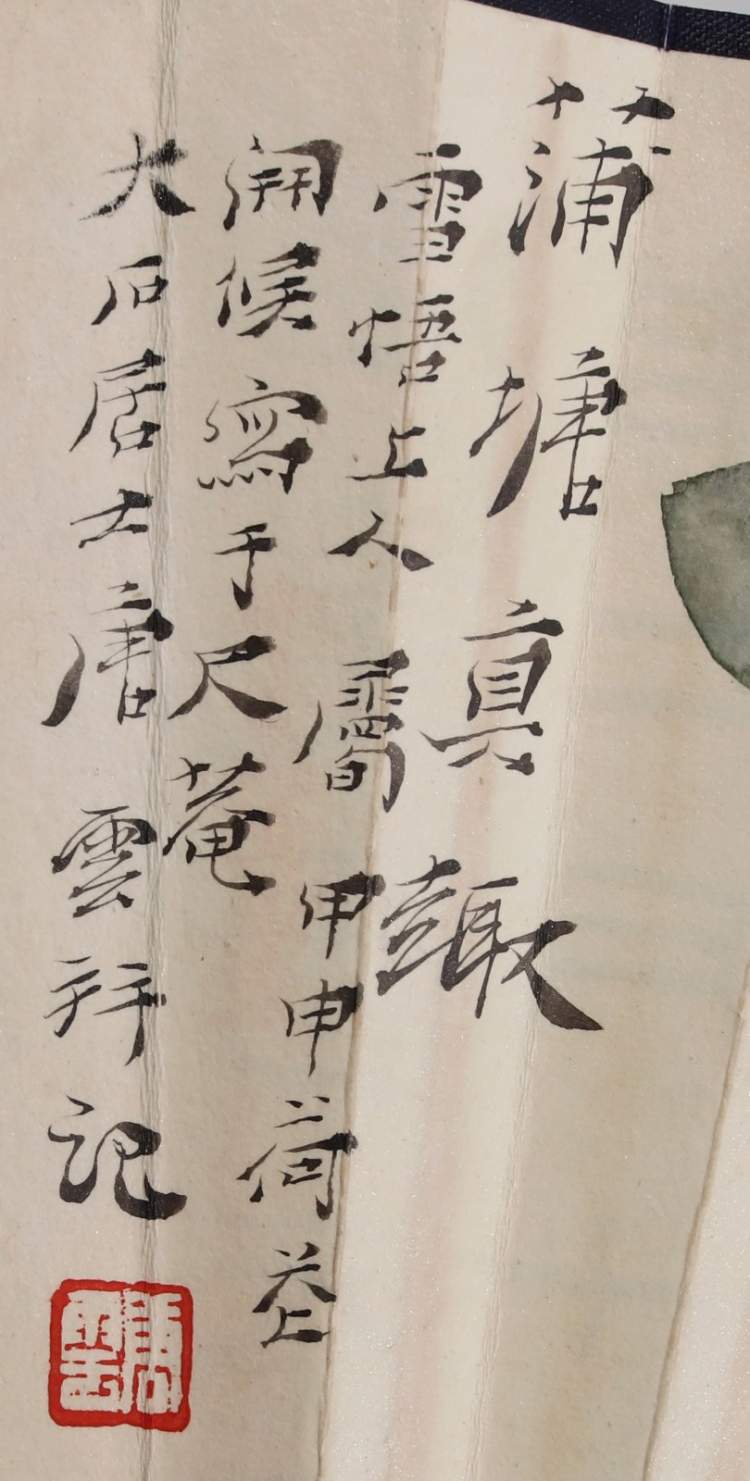 蒲塘真趣
雪悟上人屬甲申荷花
開候寫于尺菴
大石居士唐雲并記
唐雲